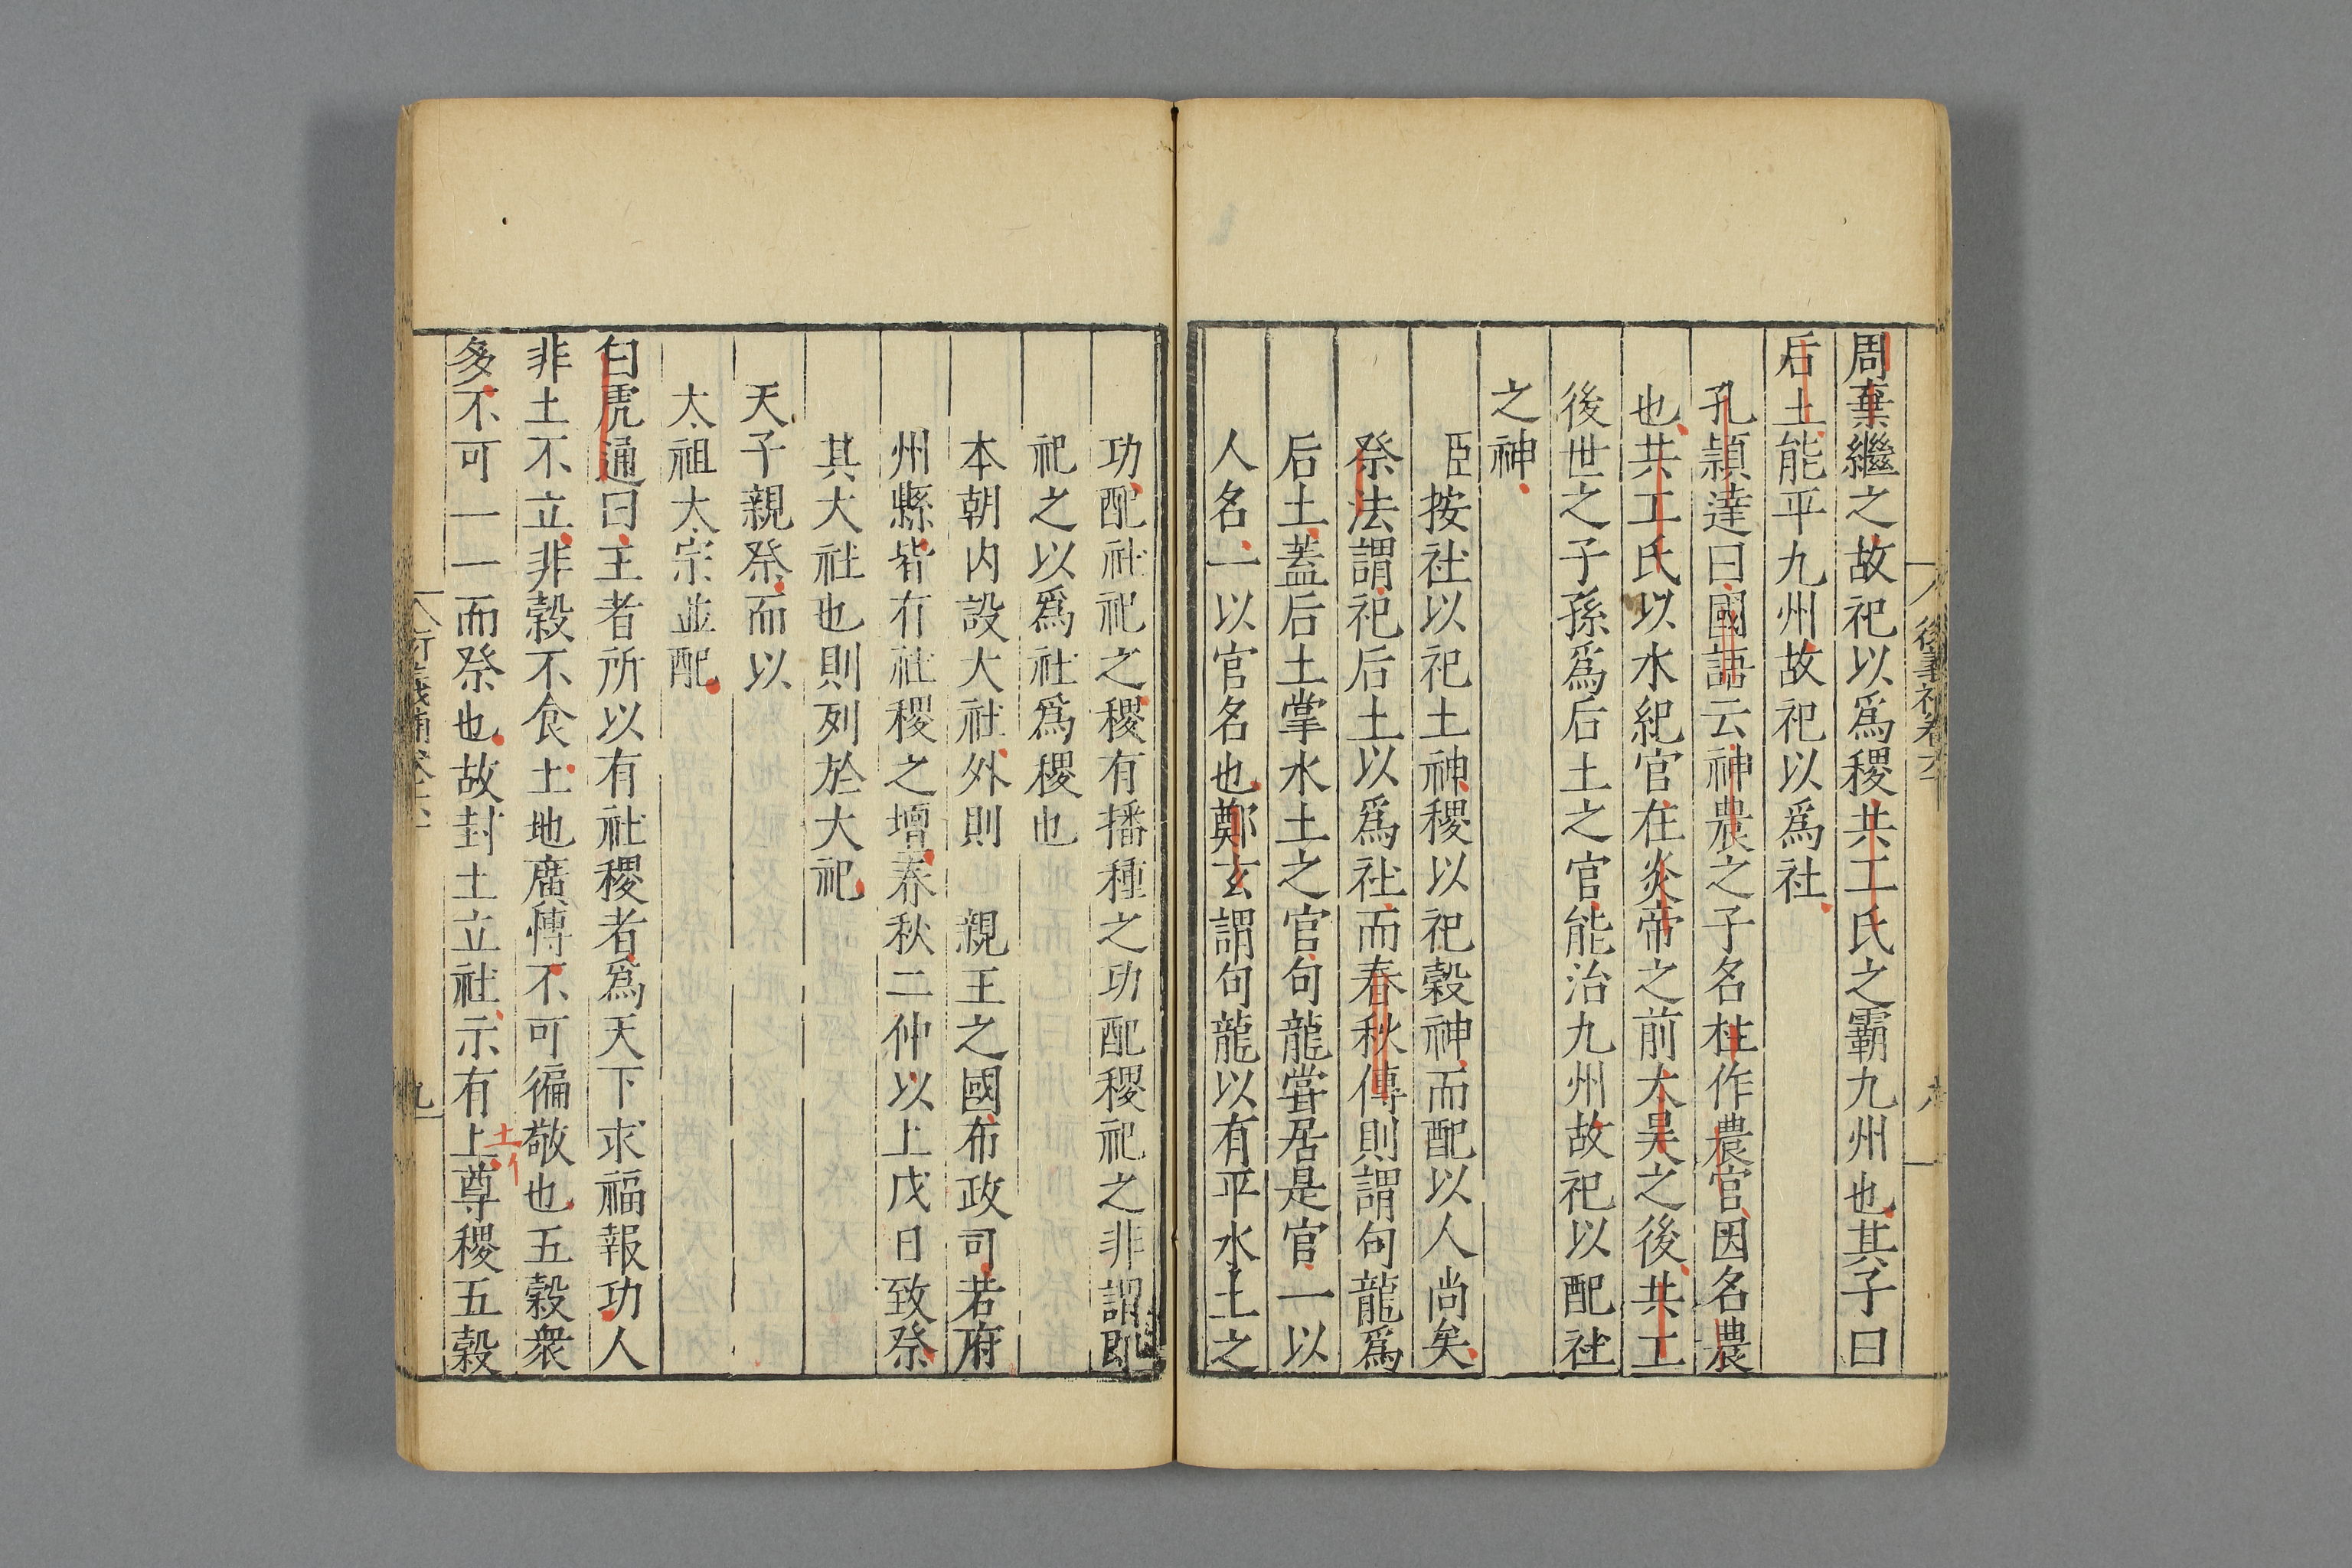 周棄繼之故祀以爲稷共工氏之霸九州也其子曰
后土能平九州故祀以爲社
孔頴達曰國語云神農之子名柱作農官因名農
也共工氏以水紀官在炎帝之前大昊之後共工
後世之子孫爲后土之官能治九州故祀以配社
之神
臣按社以祀土神稷以祀穀神而配以人尚矣
祭法謂祀后土以爲社而春秋傳則謂句龍爲
后土蓋后土掌水土之官句龍嘗居是官一以
人名一以官名也鄭玄謂句龍以有平水土之
功配社祀之稷有播種之功配稷祀之非謂即
祀之以爲社爲稷也
本朝内設大社外則 親王之國布政司若府
州縣皆有社稷之壇春秋二仲以上戊日致祭
其大社也則列於大祀
天子親祭而以
太祖太宗並配
白虎通曰王者所以有社稷者爲天下求福報功人
非土不立非穀不食土地廣愽不可徧敬也五穀衆
多不可一一而祭也故封土立社示有上尊稷五穀
土
九